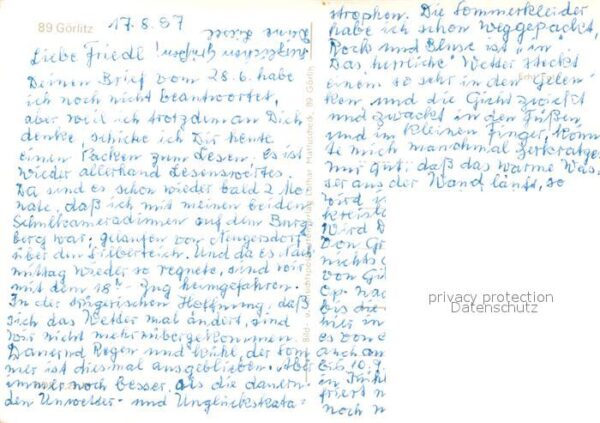 89 Görlitz
17.8.87
Liebe Friedl!
Deinen Brief vom 28.6. habe
ich noch nicht beantwortet,
aber weil ich trotzdem an Dich
denke, schicke ich Dir heute
einen Packen zum Lesen. Es ist
wieder allerhand Lesenswertes.
Da sind es schon wieder bald 2 Mo-
nate, daß ich mit meinen beiden
Schulkameradinnen auf dem Burg
berg war; gelaufen von Neugersdorf
über den Silberteich. Und da es Nach
mittag wieder so regnete, sind wir
mit dem 18h- Zug heimgefahren.
In der trügerischen Hoffnung, daß
sich das Wetter mal ändert, sind
wir nicht mehr rübergekommen.
Dauernd Regen und kühl, der Som
mer ist diesmal ausgeblieben. Aber
immer noch besser, als die dauern-
den Unwetter- und Unglückskata-
strophen. Die Sommerkleider
habe ich schon weggepackt,
Rock und Bluse ist "in
Das herrliche Wetter steckt
einem so sehr in den Gelen-
ken, und die Gicht zwickt
und zwackt in den Füßen
und im kleinen Finger, könn
te mich manchmal zerkratzen
nur gut, daß das warme Was-
ser aus der Wand läuft, so
wird
Wird
von
nichts
von
bis die
hier in
es von
auch an
bis 10.
friert
noch
privacy protection
Datenschutz